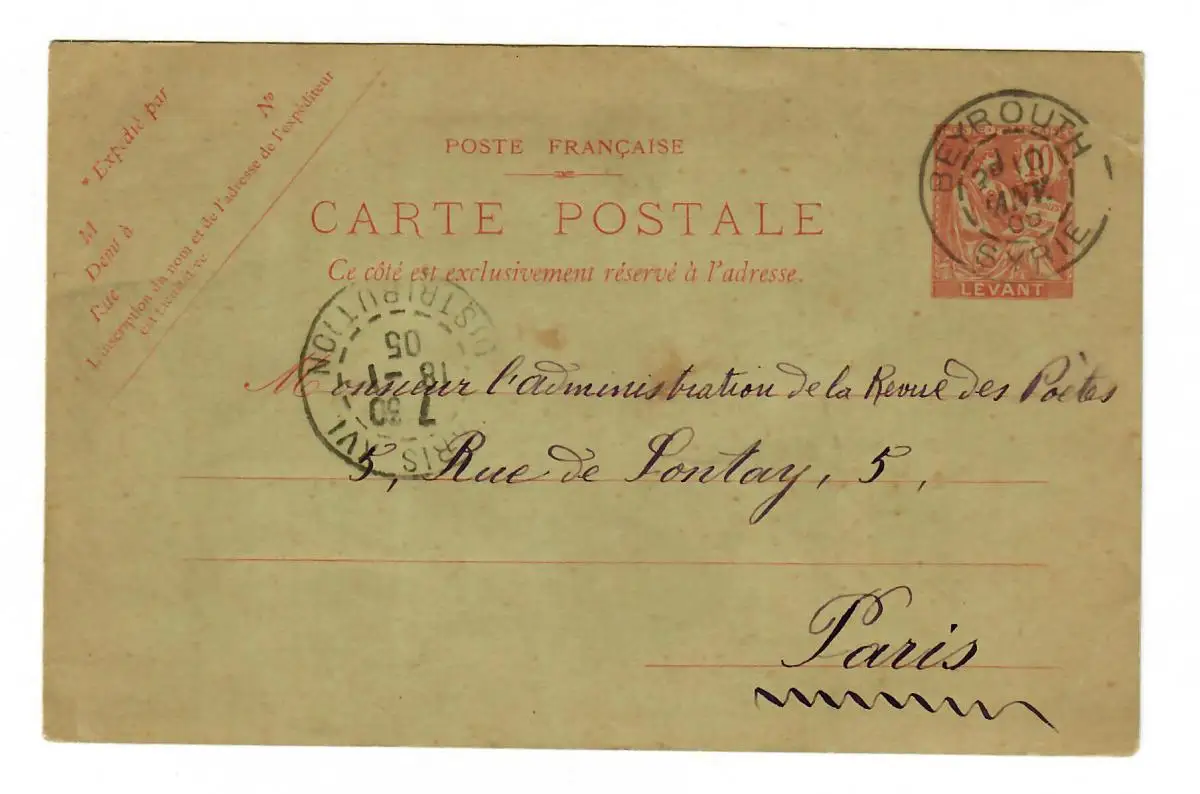 * Expédié par
M
Demt à
Rue
No
L'inscription du nom et de l'adresse de l'expéditeur
est facultative
POSTE FRANÇAISE
CARTE POSTALE
Ce côté est exclusivement réservé à l'adresse.
BEYROUTH
10
JANV.
05
SYRIE
LEVANT
PARIS XVI
DISTRIBUTION
7 30
18 -1
05
Monsieur l'administration de la Revue des Poètes
5, Rue de Pontay, 5,
Paris